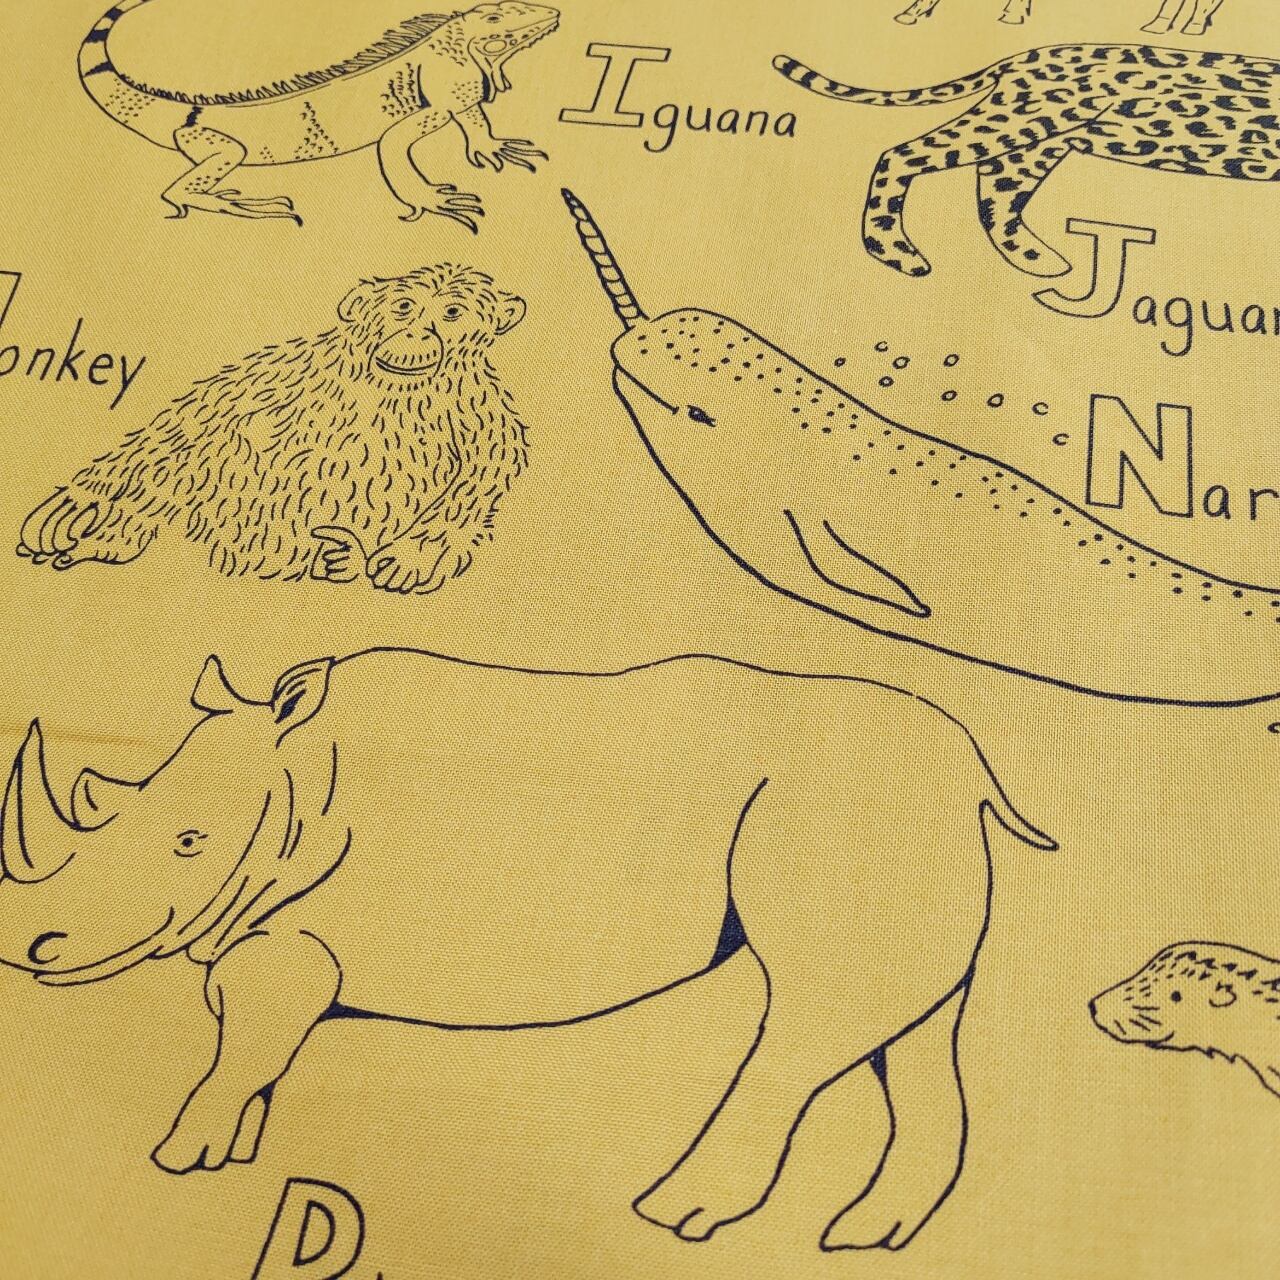 Iguana
Jaguar
onkey
Nar
R